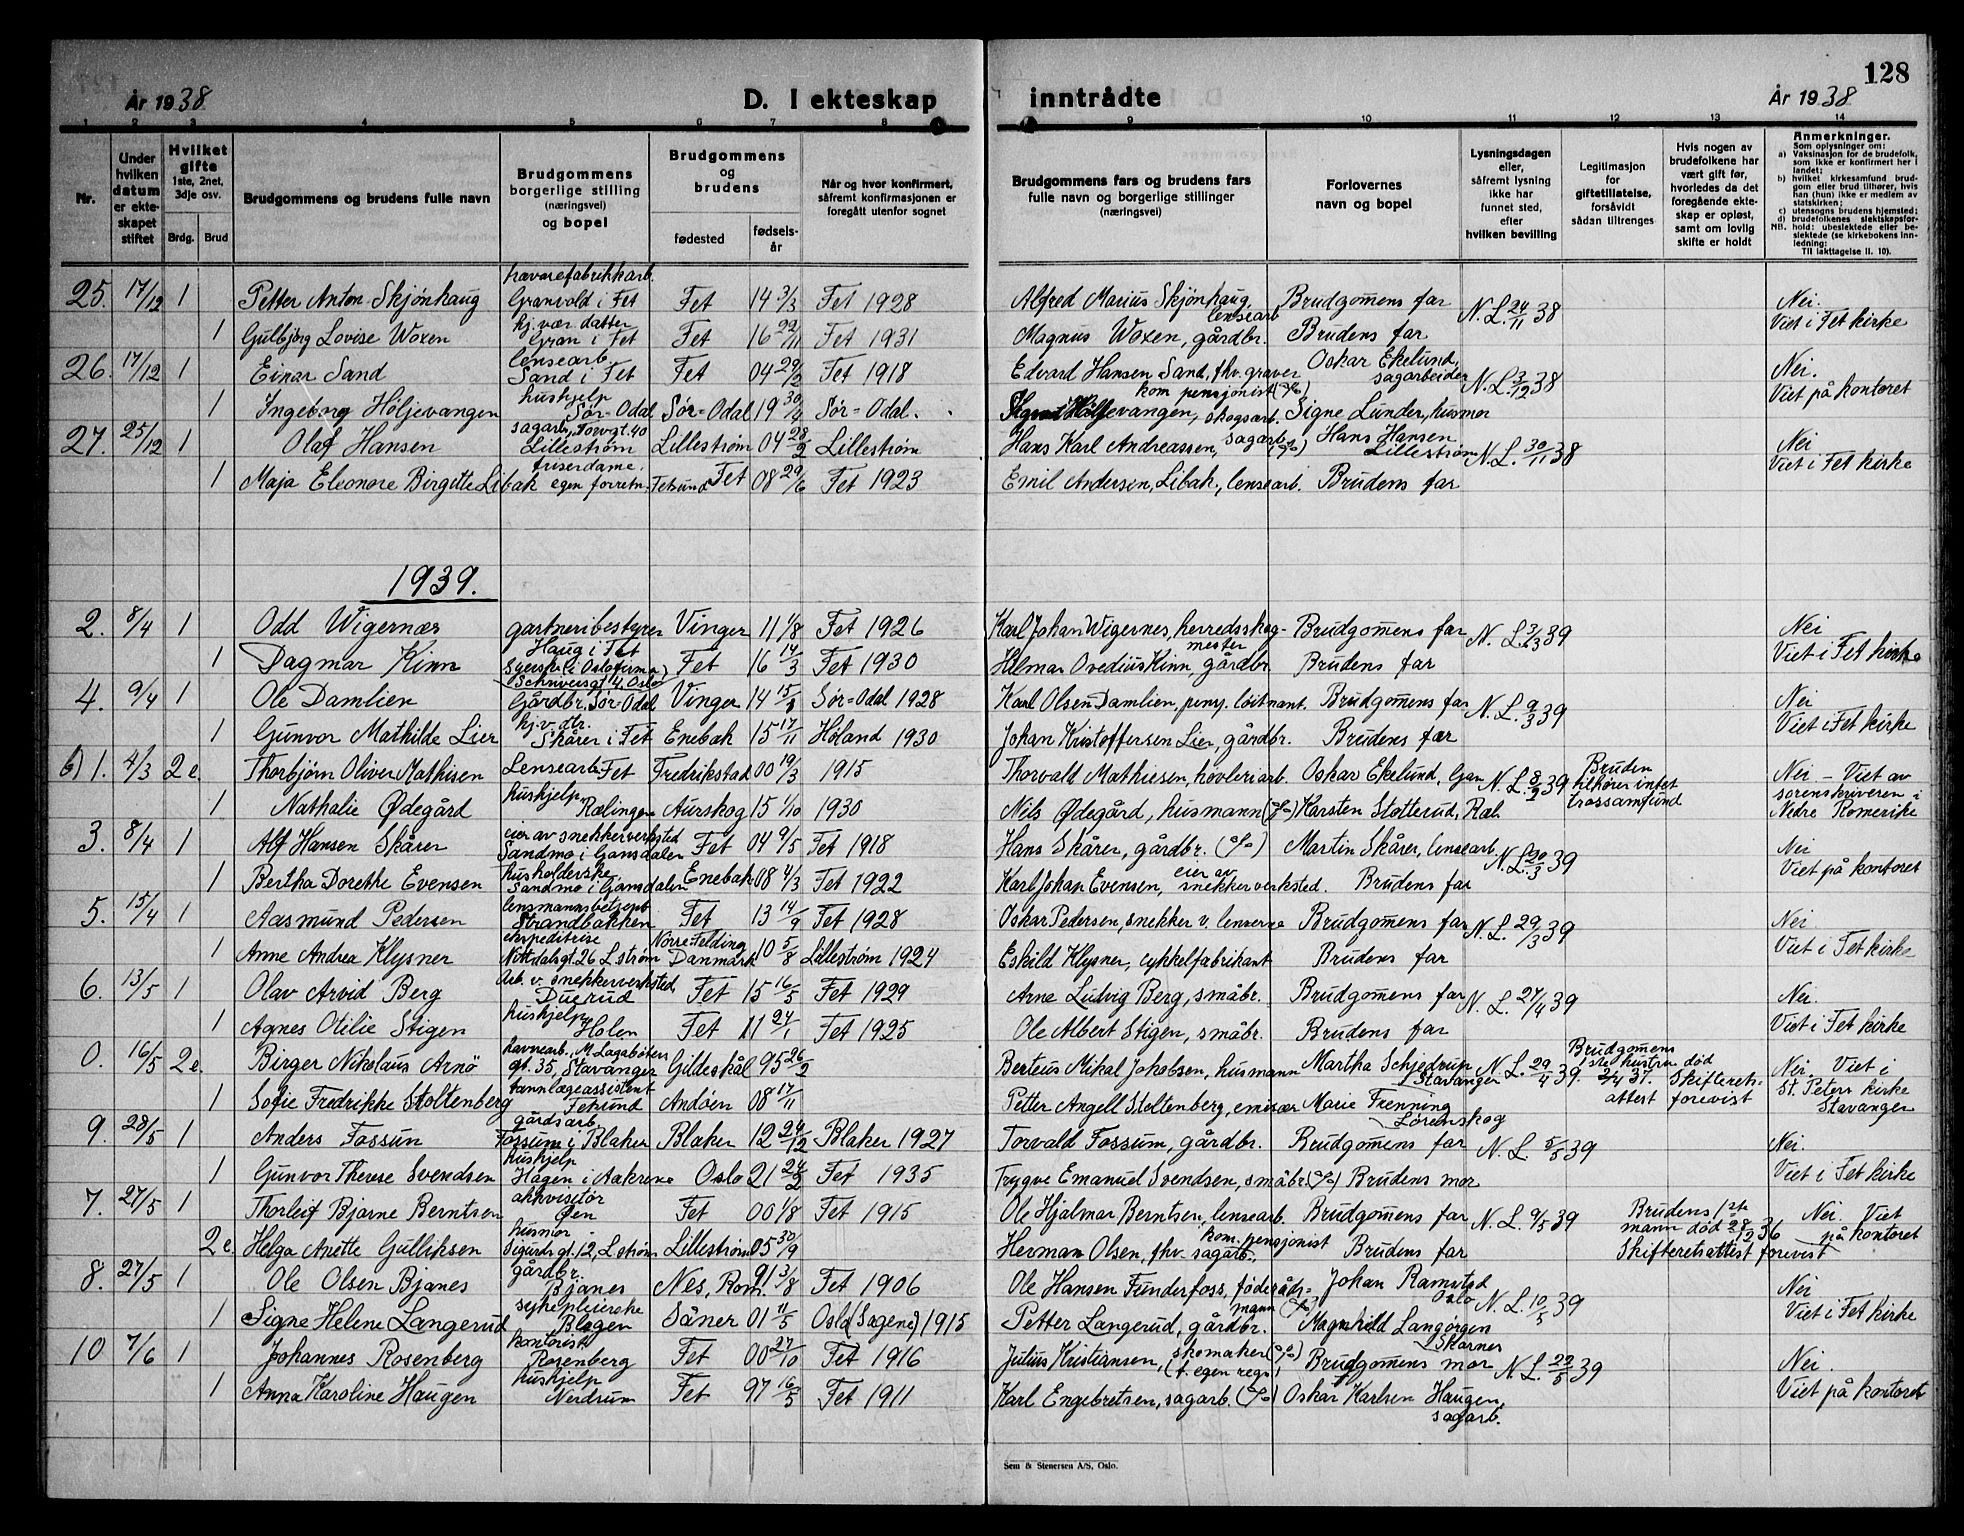 128
År 1938
D. I ekteskap
inntrådte
År 1938
1 2 3 4 5 6 7 8 9 10 11 12 13 14
Nr.
Under hvilken datum er ekteskapet stiftet
Hvilket gifte 1ste, 2net, 3dje osv.
Brdg. Brud
Brudgommens og brudens fulle navn
Brudgommens borgerlige stilling (næringsvei) og bopel
Brudgommens og brudens
fødested
fødsels-år
Når og hvor konfirmert, såfremt konfirmasjonen er foregått utenfor sognet
Brudgommens fars og brudens fars fulle navn og borgerlige stillinger (næringsvei)
Forlovernes navn og bopel
Lysningsdagen eller, såfremt lysning ikke har funnet sted, efter hvilken bevilling
Legitimasjon for giftetillatelse, forsåvidt sådan tiltrenges
Hvis nogen av brudefolkene har vært gift før, hvorledes da det foregående ekteskap er opløst, samt om lovlig skifte er holdt
Anmerkninger.
Som oplysninger om:
a) Vaksinasjon for de brudefolk, som ikke er konfirmert her i landet;
b) hvilket kirkesamfund brudgom eller brud tilhører, hvis han (hun) ikke er medlem av statskirken;
c) utensogns brudens hjemsted;
d) brudefolkenes slektskapsforhold: ubeslektede eller beslektede (se kirkebokens innledning:
NB. Til iakttagelse II. 10).
25. 17/12 1 Petter Anton Skjønhaug trævarefabrikkarb. Granvold i Fet Fet 14 3/3 Fet 1928 Alfred Marius Skjönhaug, lensearb Brudgomens far N.L. 24/11 38 Nei.
1 Gulbjørg Lovise Woxen hj.vær. datter Gran i Fet Fet 16 22/11 Fet 1931 Magnus Woxen, gårdbr. Brudens far Viet i Fet kirke
26. 17/12 1 Einar Sand lensearb. Sand i Fet Fet 04 29/2 Fet 1918 Edvard Hansen Sand, fhv. graver kom pensjonist (%) Oskar Ekelund, sagarbeider N.L. 3/12 38 Nei.
1 Ingeborg Höljevangen hushjelp Sør-Odal Sør=Odal 19 30/4 Sør=Odal. Höljevangen, skogsarb. Signe Lunder, husmor Viet på kontoret
27. 25/12 1 Olaf Hansen sagarb., Torvgt. 40 Lillestrøm Lillestrøm 04 28/2 Lillestrøm Hans Karl Andreassen, sagarb. (%) Hans Hansen Lillestrøm N.L. 30/11 38 Nei
1 Maja Eleonore Birgitte Libak friserdame. egen forretn. Fetsund Fet 08 29/6 Fet 1923 Emil Andersen, Libak, lensearb. Brudens far Viet i Fet kirke
1939.
2. 8/4 1 Odd Wigernæs gartneribestyrer Haug i Fet Vinger 11 1/8 Fet 1926 Karl Johan Wigernes, herredsskogmester Brudgomens far N.L. 3/3 39 Nei
1 Dagmar Kinn Syerske i Oslofirma Schriversgt 4, Oslo Fet 16 14/3 Fet 1930 Hilmar Ovedius Kinn, gårdbr. Brudens far Viet i Fet kirke
4. 9/4 1 Ole Damlien Gårdbr. Sør-Odal Vinger 14 15/ Sør=Odal 1928 Karl Olsen Damlien, pens. løitnant. Brudgomens far N.L. 9/3 39 Nei
1 Gunvor Mathilde Lier hj.v. dtr. Skårer i Fet Enebak 15 17/11 Høland 1930 Johan Kristoffersen Lier, gårdbr. Brudens far Viet i Fet kirke
b) 1. 4/3 2e. Thorbjørn Oliver Mathisen Lensearb. Fet Fredrikstad 00 19/3 1915 Thorvald Mathiesen, høvleriarb. Oskar Ekelund, Gan N.L. 8/2 39 Bruden tilhører intet trossamfund Nei - Viet av
1 Nathalie Ødegård hushjelp, Rælingen Aurskog 15 1/10 1930 Nils Ødegård, husmann (%) Karsten Stotterud, Ræl. sorenskriveren i Nedre Romerike
3. 8/4 1 Alf Hansen Skårer eier av snekkerverksted Sandmo i Gansdalen Fet 04 9/5 Fet 1918 Hans Skårer, gårdbr. (%) Martin Skårer, lensearb. N.L. 20/3 39 Nei
1 Bertha Dorethe Evensen husholderske, Sandmo i Gansdalen Enebak 08 4/3 Fet 1922 Karl Johan Evensen, eier av snekkerverksted. Brudens far Viet på kontoret
5. 15/4 1 Aasmund Pedersen lensmannsbetjent Strandbakken Fet 13 14/9 Fet 1928 Oskar Pedersen, snekker v. lensene Brudgomens far N.L. 29/3 39 Nei
1 Anne Andrea Klysner ekspeditrise Nittedalsgt. 26 L.strøm Nørre-Felding Danmark 10 5/8 Lillestrøm 1924 Eskild Klysner, cykkelfabrikant Brudens far Viet i Fet kirke
6. 13/5 1 Olav Arvid Berg Arb. v. snekkerverksted Duerud Fet 15 16/5 Fet 1929 Arne Ludvig Berg, småbr. Brudgomens far N.L. 27/4 39 Nei.
1 Agnes Otilie Stigen hushjelp Holen Fet 11 24/1 Fet 1925 Ole Albert Stigen, småbr. Brudens far Viet i Fet kirke
0. 16/5 2e. Birger Nikolaus Arnö havnearb., M. Lagabøters gt. 35, Stavanger Gildeskål 95 26/2 Berteus Mikal Jakobsen, husmann Martha Schjedrup Stavanger N.L. 29/4 39. Brudgomens 1ste hustru død 2/4 37. Skifterets- attest forevist Nei. Viet i
1 Sofie Fredrikke Stoltenberg tannlægeassistent Fetsund Andöen 08 17/11 Petter Angell Stoltenberg, emisær Marie Frenning Lørenskog St. Peters kirke Stavanger
9. 28/5 1 Anders Fossum gårdsarb. Fossum i Blaker Blaker 12 24/12 Blaker 1927 Torvald Fossum, gårdbr. Brudgomens far N.L. 5/5 39 Nei.
1 Gunvor Therese Svendsen hushjelp Hagen i Aakrene Oslo 21 24/2 Fet 1935 Trygve Emanuel Svendsen, småbr. (%) Brudens mor Viet i Fet kirke
7. 27/5 1 Thorleif Bjarne Berntsen akkvisitør Øen Fet 00 1/8 Fet 1915 Ole Hjalmar Berntsen, lensearb. Brudgomens far N.L. 9/5 39 Brudens 1ste mann død 28/2 36 Nei. Viet
2e. Helga Anette Gulliksen husmor Sigurds gt. 12, L.strøm Lillestrøm 05 30/9 Herman Olsen, fhv. sagarb. kom. pensjonist Brudens far Skifteretsattest forevist på kontoret
8. 27/5 1 Ole Olsen Bjanes gårdbr. Bjanes Nes, Rom. 91 3/8 Fet 1906 Ole Hansen Funderfoss, föderådsmann (%) Johan Ramstad Oslo N.L. 10/5 39 Nei
1 Signe Helene Langerud sykepleierske Såner 01 11/5 Oslo (Sagene) 1915 Petter Langerud, gårdbr. Magnhild Langorgen Skarnes Viet i Fet kirke
10 7/6 1 Johannes Rosenberg kontorist Rosenberg Fet 00 27/10 Fet 1916 Julius Kristiansen, skomaker (%) (f. egen regn.) Brudgomens mor N.L. 22/5 39 Nei.
1 Anna Karoline Haugen hushjelp Nerdrum Fet 97 16/5 Fet 1911 Karl Engebretsen, sagarb. (%) Oskar Karlsen Haugen, sagarb. Viet på kontoret
Sem & Stenersen A/S, Oslo.